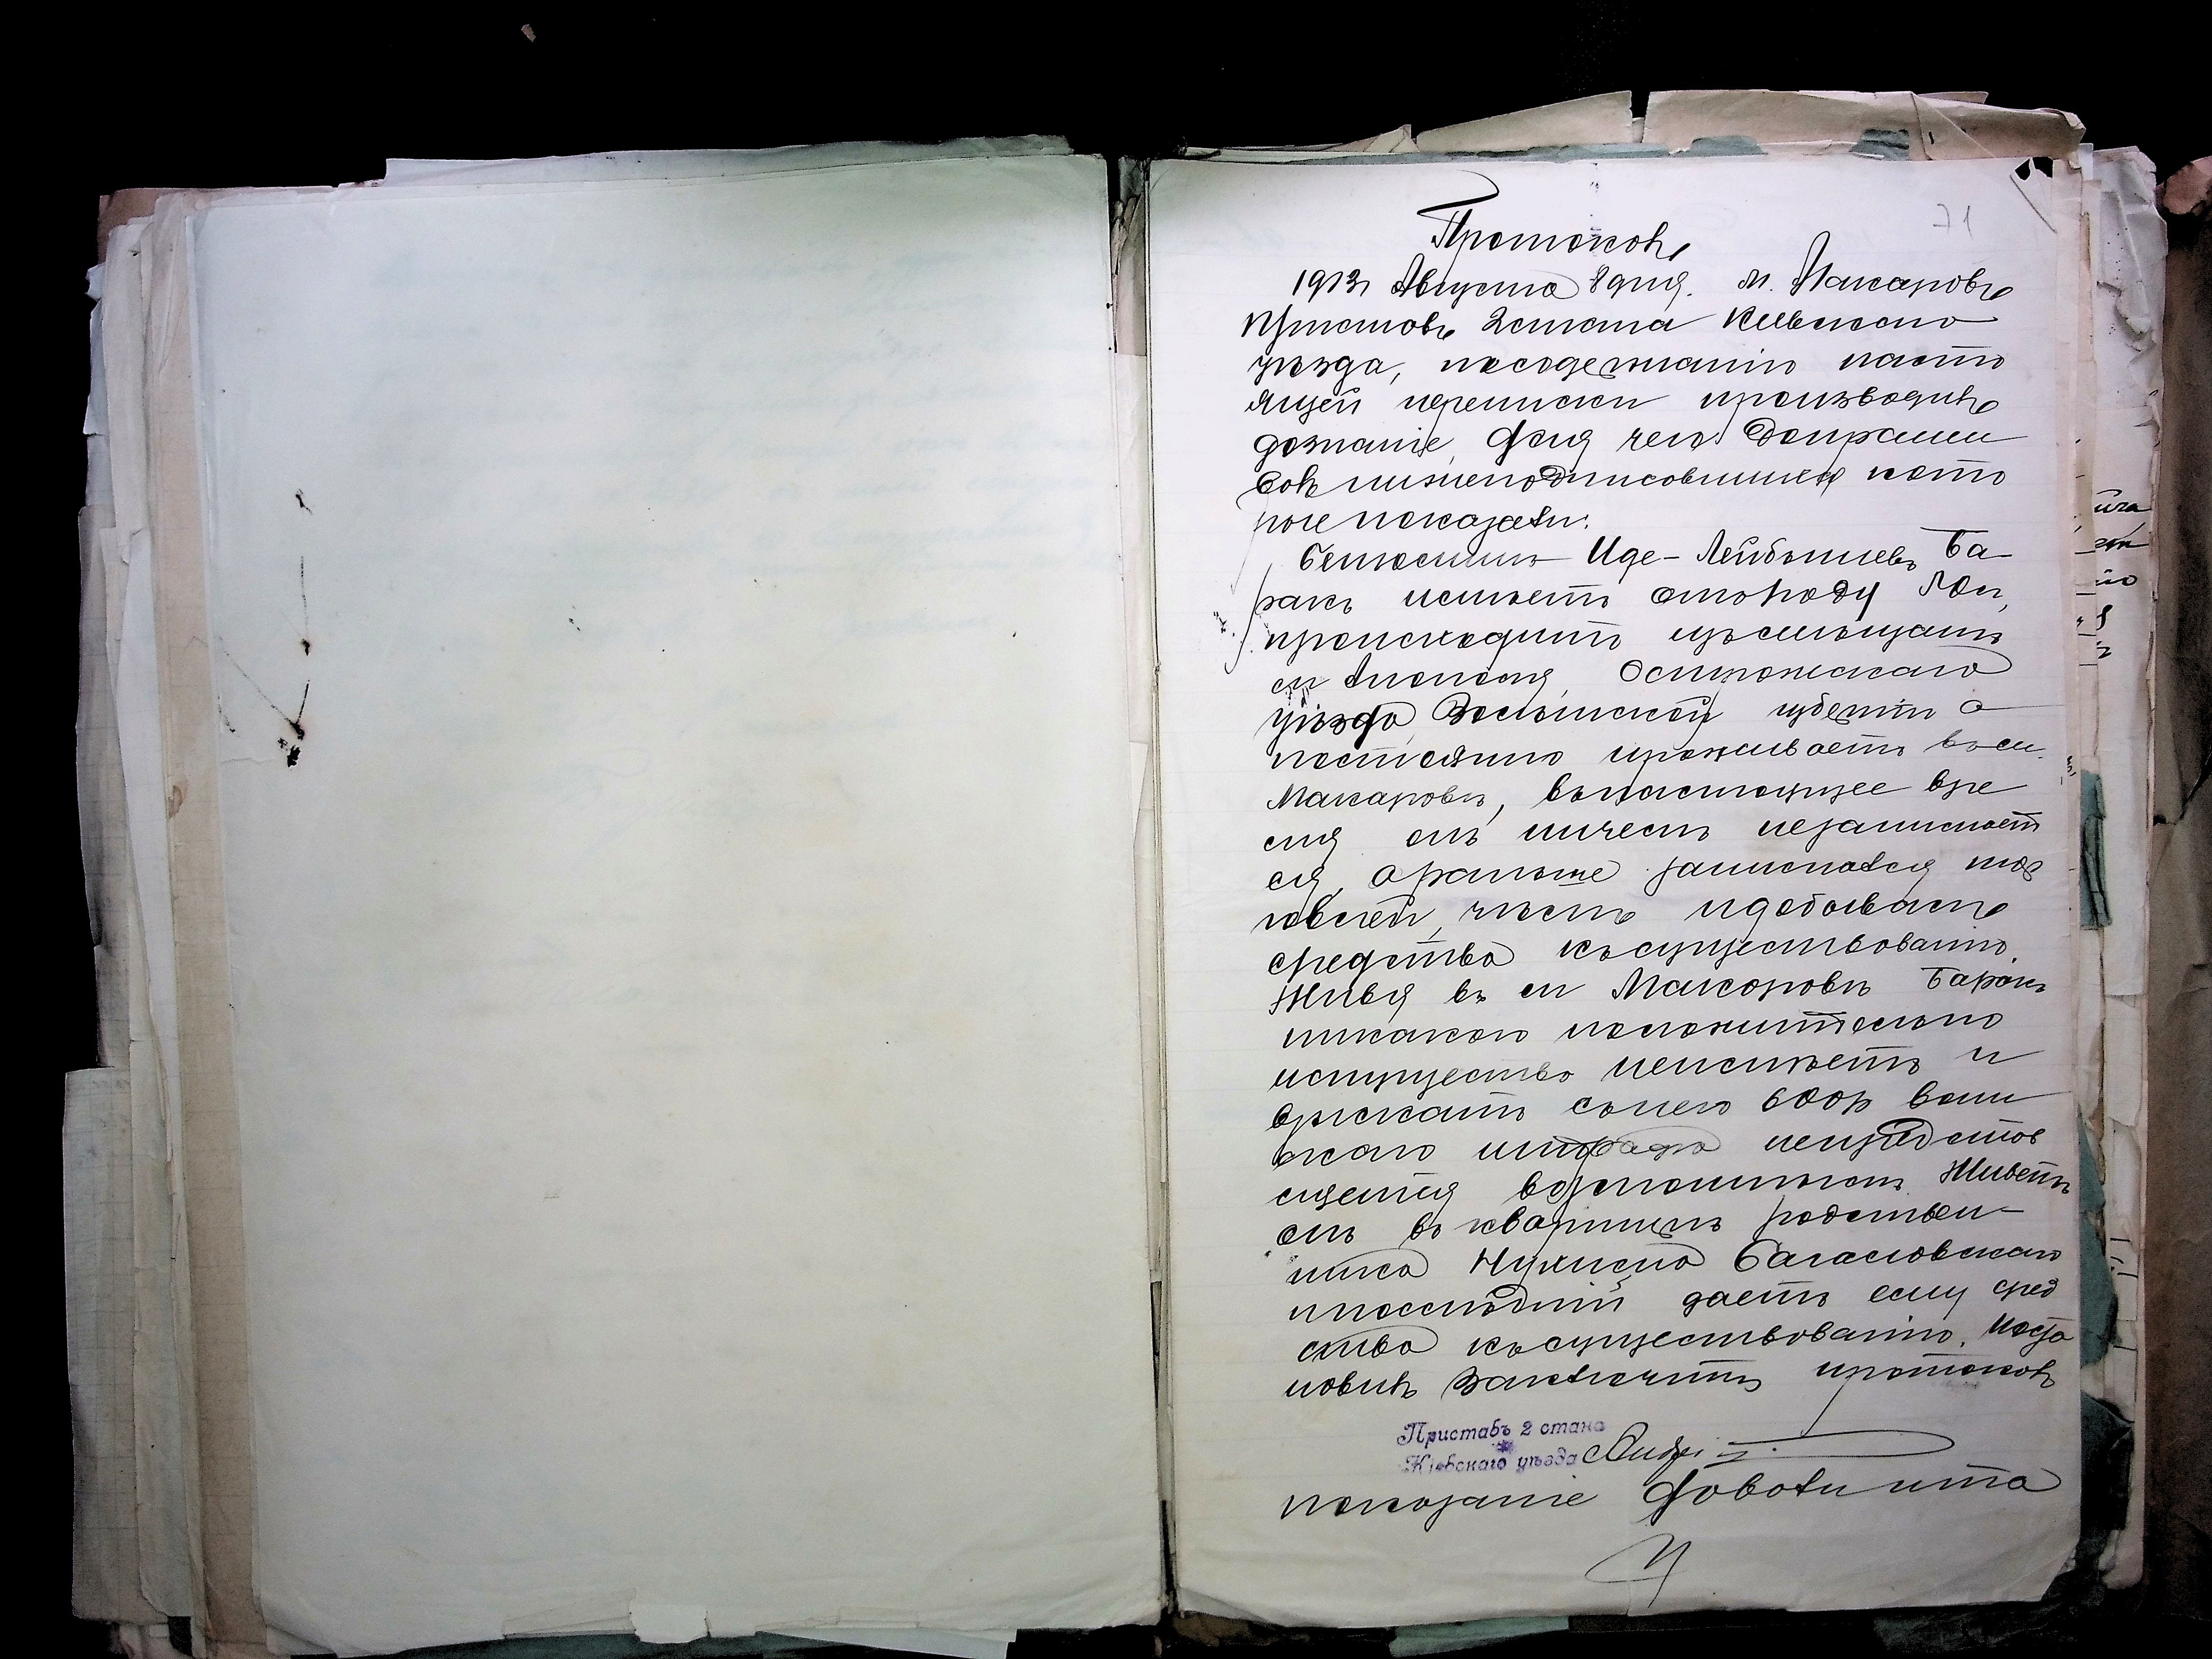 71
Протоколъ
1913 г Августа 8 дня. м. Макаровъ
Приставъ 2 стана Кіевскаго
уѣзда, посодержанію насто
ящей переписки производилъ
дознаніе, для чего допраши
валъ нижеподписавшихся кото
рые показали:
Иде-Лейбышевъ Ба-
ракъ имѣетъ отъ роду
происходитъ изъ мѣщанъ
м Острожскаго
уѣзда Волынской губерніи а
постоянно проживаетъ въ м.
Макаровѣ, въ настоящее вре
мя онъ ничемъ незанимает
ся, а раньше занимался тор
говлей, чѣмъ и добывалъ
средства къ существованію.
Живя въ м Макаровѣ Баракъ
никакого положительно
имущества неимѣетъ и
взыскать съ него 600 р
штрафа непредстов
ляется возможнымъ Живетъ
онъ въ квартирѣ родствен-
ника Нухима Багасловскаго
и послѣдній даетъ ему сред
ства къ существованію. Поста
новилъ заключить протоколъ
Приставъ 2 стана
Кіевскаго уѣзда
показаніе